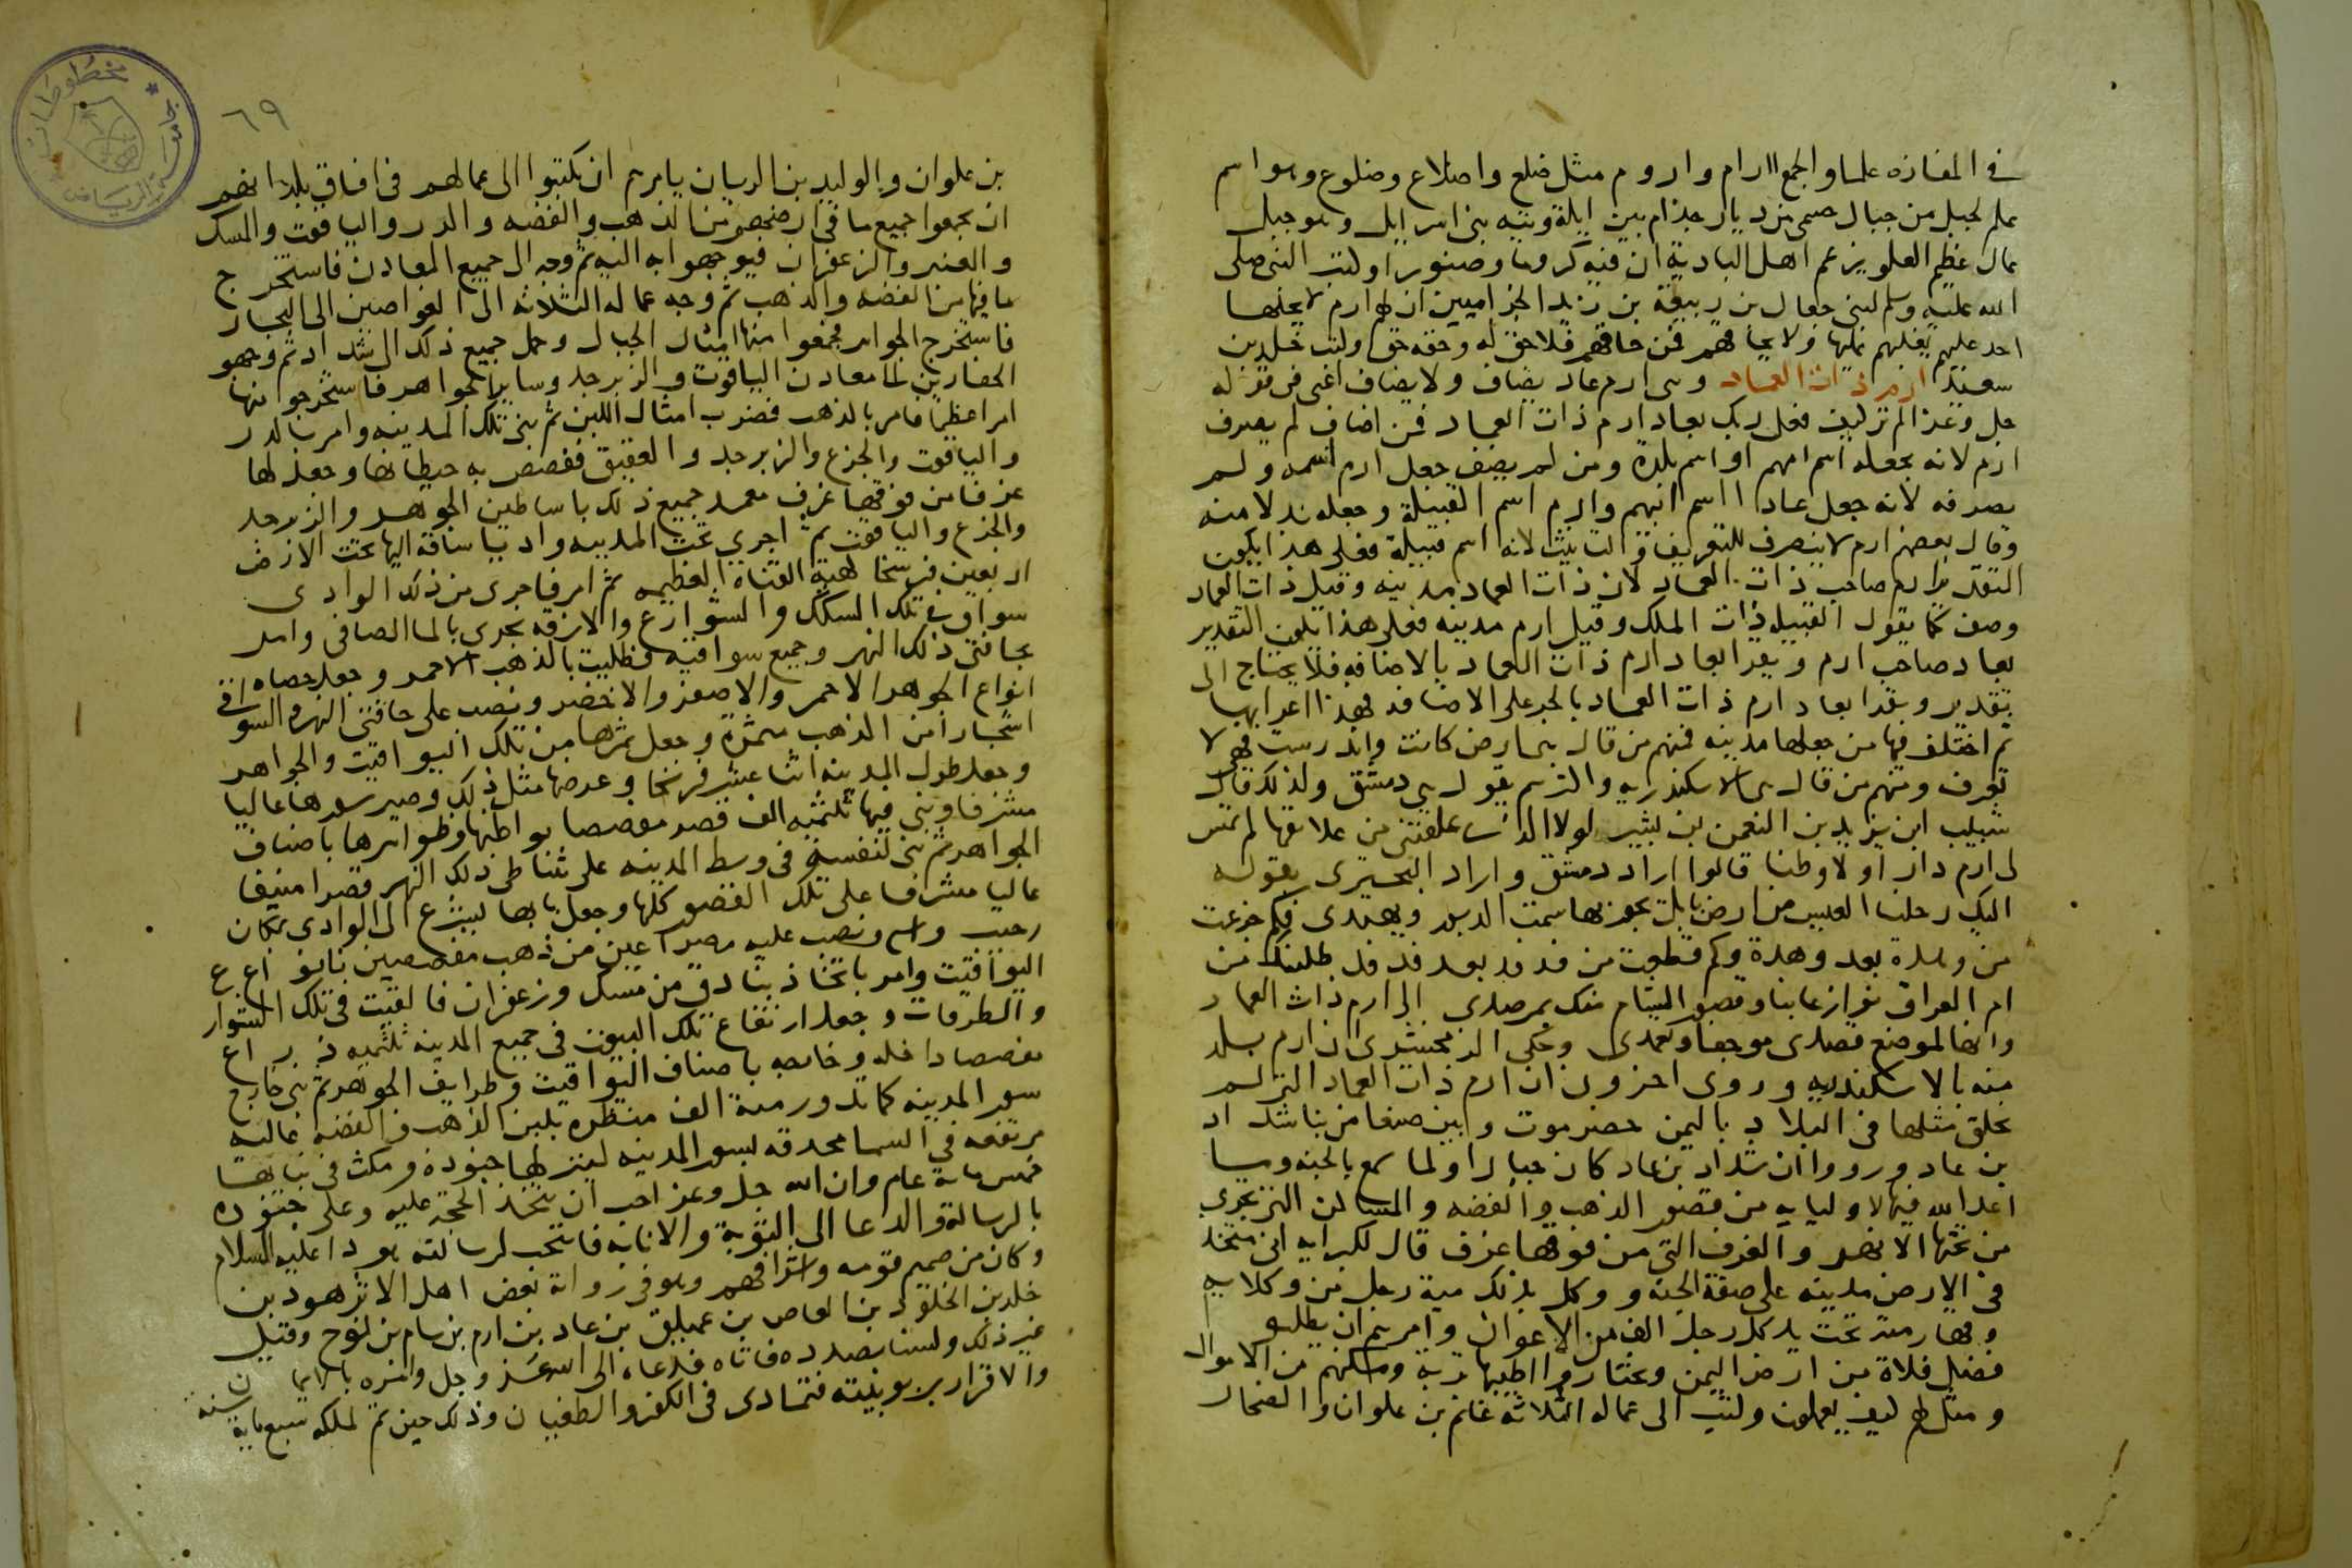 في المفازه علما والجمع اارام واروم مثل ضلع واضلاع وضلوع وهو اسم
علم لجبل من جبال حسمى من ديار جذام بين ايلة وتيه بنى اسرايل وهو جبل
عال عظيم العلو يزعم اهل البادية ان فيه كروما وصنوبرا وكتب النبى صلى
الله عليه وسلم لبنى جعال بن ربيعة بن زيد الجذاميين ان لهم ارم لا يحلها
احد عليهم يغلبهم عليها ولا يحاقهم فمن حاقهم فلا حق له وحقهم حق وكتب خلد بن
سعيد ارم ذات العماد وهى ارم عاد يضاف ولا يضاف اعنى فى قوله
جل وعز الم تر كيف فعل ربك بعاد ارم ذات العماد فمن اضاف لم يصرف
ارم لانه يجعله اسم امهم او اسم بلدة ومن لم يضف جعل ارم اسمه ولم
يصرفه لانه جعل عادا اسم ابيهم وارم اسم القبيلة وجعله بدلا منه
وقال بعضهم ارم لا ينصرف للتعريف والتانيث لانه اسم قبيلة فعلى هذا يكون
التقدير ارم صاحب ذات العماد لان ذات العماد مدينه وقيل ذات العماد
وصف كما يقول القبيله ذات الملك وقيل ارم مدينه فعلى هذا يكون التقدير
بعاد صاحب ارم ويقرا بعاد ارم ذات العماد بالاضافه فلا يحتاج الى
تقدير ويقرا بعاد ارم ذات العماد بالجر على الاضافه فهذا اعرابها
ثم اختلف فيها من جعلها مدينه فمنهم من قال هى ارض كانت واندرست فهى لا
تعرف ومنهم من قال هى الاسكندريه واكثرهم يقول هى دمشق ولذلك قال
شبيب ابن يزيد بن النعمن بن بشير لولا التى علقتنى من علايقها لم تمس
لى ارم دار اولا وطنا قالوا اراد دمشق واراد البحترى بقوله
اليك رحلنا العيس من ارض بابل يجوز بها سمت الدبور ويهتدى فكم جزعت
من وهدة بعد وهدة وكم قطعت من فدفد بعد فدفد طلبنك من
ام العراق نوازعا بنا وقصور الشام منك بمرصدى الى ارم ذات العماد
وانها لموضع قصدى موجفا وتعمدى وحكى الزمخشرى ان ارم بلد
منه بالاسكندريه وروى اخرون ان ارم ذات العماد التى لم
يخلق مثلها فى البلاد باليمن حضرموت وبين صنعا من بنا شداد
بن عاد ورووا ان شداد بن عاد كان جبارا ولما سمع بالجنه وما
اعد الله فيها لاوليايه من قصور الذهب والفضه والمساكن التى تجرى
من تحتها الانهر والغرف التى من فوقها غرف قال لكبرايه انى متخذ
فى الارض مدينه على صفة الجنه ووكل بذلك مية رجل من وكلايه
وقهارمته تحت يد كل رجل الف من الاعوان وامرهم ان يطلبو
فضل فلاة من ارض اليمن ويختاروا اطيبها تربه ومكنهم من الاموال
ومثل لهم كيف يعملون وكتب الى عماله الثلاثه غانم بن علوان والضحاك
٦٩
بن علوان والوليد بن الريان يامرهم ان يكتبوا الى عمالهم فى افاق بلدانهم
ان يجمعوا جميع ما فى ارضهم من الذهب والفضه والدر والياقوت والمسك
والعنبر والزعفران فيوجهوا به اليه ثم وجه الى جميع المعادن فاستخرج
ما فيها من الفضه والذهب ثم وجه عماله الثلاثه الى الغواصين الى البحار
فاستخرج الجواهر فجمعوا منها امثال الجبال وحمل جميع ذلك الى شداد ثم وجهو
الحفارين الى معادن الياقوت والزبرجد وساير الجواهر فاستخرجوا منها
امرا عظيما فامر بالذهب فضرب امثال اللبن ثم بنى تلك المدينه وامر بالدر
والياقوت والجزع والزبرجد والعقيق ففصص به حيطانها وجعل لها
غرفا من فوقها غرف معمد جميع ذلك باساطين الجوهر والزبرجد
والجزع والياقوت ثم اجرى تحت المدينه واديا ساقه اليها تحت الارض
اربعين فرسخا كهية القناه العظيمه ثم امر فاجرى من ذلك الوادى
سواقى فى تلك السكك والشوارع والازقه تجرى بالما الصافى وامر
بحافتى ذلك النهر وجميع سواقيه فطليت بالذهب الاحمر وجعل حصاه
انواع الجوهر الاحمر والاصفر والاخضر ونصب على حافتى النهر والسواقى
اشجارا من الذهب مثمرة وجعل ثمرها من تلك اليواقيت والجواهر
وجعل طول المدينه اثنا عشر فرسخا وعرضها مثل ذلك وصير سورها عاليا
مشرفا وبنى فيها ثلثميه الف قصر مفصصا بواطنها وظواهرها باصناف
الجواهر ثم بنى لنفسه فى وسط المدينه على شاطى ذلك النهر قصرا منيفا
عاليا مشرفا على تلك القصور كلها وجعل بابها يشرع الى الوادى بمكان
رحيب واسع ونصب عليه مصراعين من ذهب مفصصين بانواع
اليواقيت وامر باتخاذ بنادق من مسك وزعفران فالقيت فى تلك الشوارع
والطرقات وجعل ارتفاع تلك البيوت فى جميع المدينه ثلثميه ذراع
مفصصا داخله وخارجه باصناف اليواقيت وطرايف الجوهر ثم بنى خارج
سور المدينه كما يدور مية الف منظره بلبن الذهب والفضه عاليه
مرتفعه فى السما محدقه بسور المدينه لينزلها جنوده ومكث فى بناها
خمس ماية عام وان الله جل وعز احب ان يتخذ الحجة عليه وعلى جنوده
بالرسالة والدعا الى التوبة والانابه فانتجب لرسالته هودا عليه السلام
وكان من صميم قومه واشرافهم وهو فى رواية بعض اهل الاثر هود بن
خلد بن الخلود بن العاص بن عمليق بن عاد بن ارم بن سام بن نوح وقيل
غير ذلك ولسنا بصدده فاتاه فدعاه الى الله عز وجل وامره بالايمان
والاقرار بربوبيته فتمادى فى الكفر والطغيان وذلك حين تم لملكه سبع ماية سنه